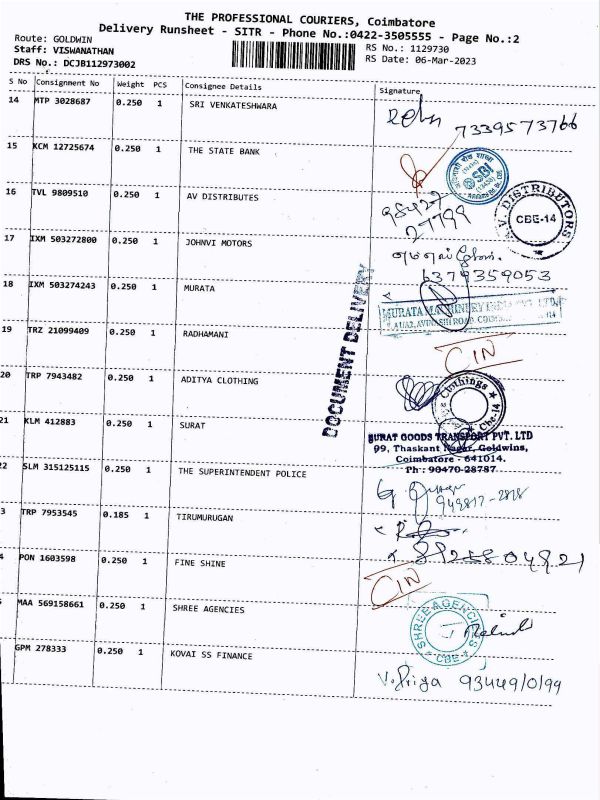 THE PROFESSIONAL COURIERS, Coimbatore
Delivery Runsheet - SITR - Phone No.:0422-3505555 - Page No.:2
Route: GOLDWIN
RS No.: 1129730
Staff: VISWANATHAN
RS Date: 06-Mar-2023
DRS No.: DCJB112973002
S No Consignment No Weight PCS Consignee Details Signature
14 MTP 3028687 0.250 1 SRI VENKATESHWARA
7339573766
15 KCM 12725674 0.250 1 THE STATE BANK
SBI
16 TVL 9809510 0.250 1 AV DISTRIBUTES
27799
A.V. DISTRIBUTORS
CBE-14
17 IXM 503272800 0.250 1 JOHNVI MOTORS
6379359053
18 IXM 503274243 0.250 1 MURATA
MURATA MACHINERY INDIA PVT. LTD.
DOCUMENT DELIVERY
19 TRZ 21099409 0.250 1 RADHAMANI
CIN
20 TRP 7943482 0.250 1 ADITYA CLOTHING
Clothings
Cbe-14
21 KLM 412883 0.250 1 SURAT
SURAT GOODS TRANSPORT PVT. LTD
99, Thaskant Nagar, Goldwins,
Coimbatore - 641014.
Ph : 90470-28787
2 SLM 315125115 0.250 1 THE SUPERINTENDENT POLICE
949817-2818
3 TRP 7953545 0.185 1 TIRUMURUGAN
4 PON 1603598 0.250 1 FINE SHINE
CIN
MAA 569158661 0.250 1 SHREE AGENCIES
SHREE AGENCIES
CBE
GPM 278333 0.250 1 KOVAI SS FINANCE
V. Priya 9344910199